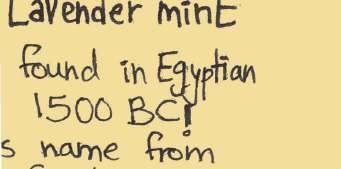 Lavender mint
found in Egyptian
1500 BC
s name from